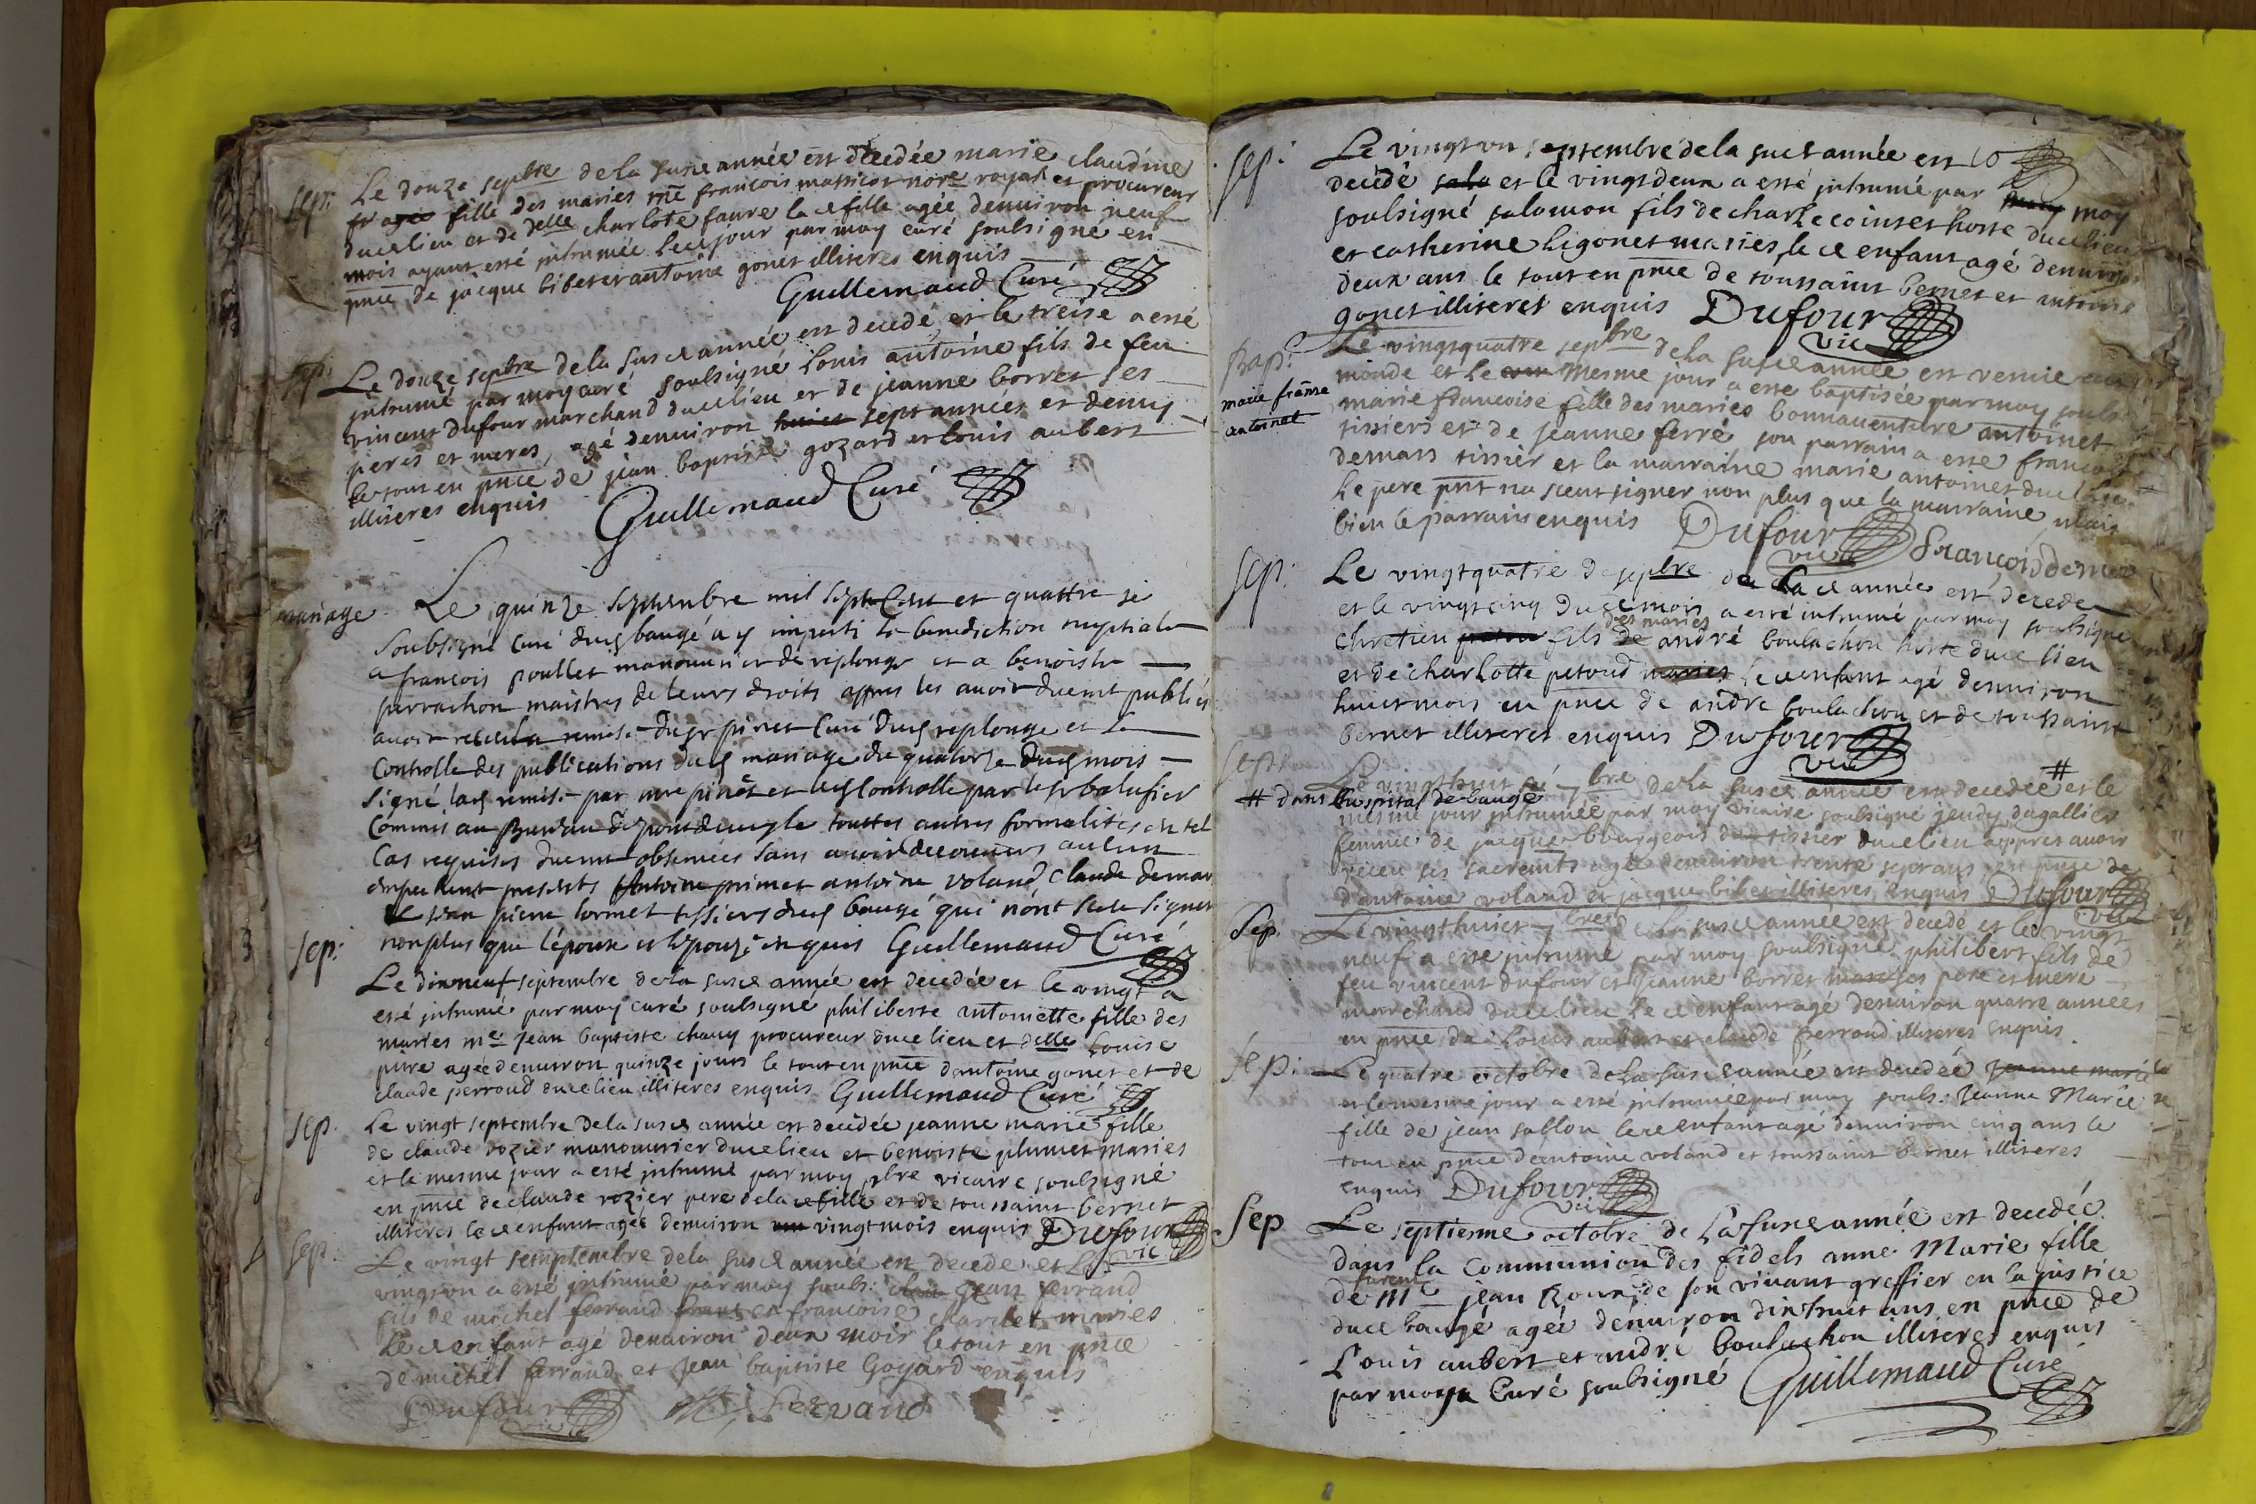 sep:
Le douze sepbre de la susd année est décédée marie claudine
fr agée fille des maries me francois massicot nore royal et procureur
ducelieu et de delle charlote faure lad fille agée denuiron neuf
mois ayant esté inhumée led jour par moy curé soulsigné en
pnce de jacque bibet et antoine gonet illiteres enquis
Guillemaud Curé
sep:
Le douze sepbre dela susd année est decedé, et le treise a esté
inhumé par moy curé soulsigné Louis antoine fils de feu
vincent dufour marchand ducelieu et de jeanne borret ses
peres et meres, agé denuiron huict sept années et demy
le tout en pnce de jean baptiste gozard et louis aubert
illiteres enquis
Guillemaud Curé
mariage
Le quinze septembre mil sept Cent et quattre je
soubsigné Curé dud baugé ay imparti la benediction nuptiale
a françois poullet manouurier de replonge et a benoiste
perrachon maistres de leurs droits apres les auoir duemt publiés
auoir receu la remise du sr pinet Curé dud replonge et le
Controlle des publications dud mariage du quatorze dud mois
signé lad remise par mre pinet et led Controlle par le sr balufier
Commis au Bureau de pontdeuesle touttes autres formalités en tel
Cas requises duemt obseruées sans auoir decouuers aulcun
empechemt presents Antoine primet antoine voland, claude demar
et jean pierre tormet tissiers dud baugé qui n'ont sceu signer
nonplus que l'epoux et l'epouse enquis Guillemaud Curé
sep:
Le dixneuf septembre de la susd année est decedée et le vingt a
esté inhumé par moy curé soulsigné philiberte antoinette fille des
maries me jean baptiste chauy procureur ducelieu et delle Louise
pure agée denuiron quinze jours le tout en pnce dantoine gonet et de
claude perroud ducelieu illiteres enquis Guillemaud Curé
sep.
Le vingt septembre dela susd année est decedée jeanne marie fille
de claude rozier manouurier ducelieu et benoiste plumet maries
et le mesme jour a esté inhumé par moy pbre vicaire soulsigné
en pnce de claude rozier pere de lad fille et de toussaint bernet
illiteres led enfant agée denuiron un vingt mois enquis Dufour
vic
sep:
Le vingt semptembre dela susd année est decede et le
vingt un a esté inhumé par moy souls: Jean ferrand
fils de michel ferrand et francoise clardet maries
Led enfant agé denuiron deux mois le tout en pnce
de michel ferrand et Jean baptiste Goyard enquis
Dufour vic Ferrand
sep:
Le vingt vn septembre dela susd année est
decedé salo et le vingt deux a esté inhumé par moy
soulsigné salomon fils de charle cointet hoste ducelieu
et catherine ligonet maries, led enfant agé denuiron
deux ans le tout en pnce de toussaint bernet et antoine
gonet illiteres enquis Dufour
vic
Bap:
marie franse
antoinet
Le vingt quatre sepbre de la susd année est venue au
monde et le mesme jour a esté baptisée par moy souls
marie francoise fille des maries bonnauenture antoinet
tissiers et de jeanne ferré son parrain a esté francois
demars tissier et la marraine marie antoinet ducelieu
Le pere pnt na sceut signer non plus que la marraine mais
bien le parrain enquis Dufour
vic François demar
sep:
Le vingt quatre de sepbre de la d année est decede
et le vingt cinq dud mois a esté inhumé par moy soulsigné
des maries
chretien fils de andré boulachon hoste ducelieu
et de charlotte petoud maries led enfant agé denuiron
huict mois en pnce de andre boulachon et de toussaint
bernet illiteres enquis Dufour
vic
sept
Le vingt huit 7bre dela susd année est decedée # et le
# dans lhospital de baugé
mesme jour inhumée par moy vicaire soulsigné jendy dagallier
femme de jacque bourgeois tissier ducelieu apprès auoir
receu ses sacremts agée denuiron trente sept ans en pnce de
d'antoine voland et jacque bibet illiteres enquis Dufour
vic
Sep.
Le vingt huict 7bre de la susd année est decedé et le vingt
neuf a esté inhumé par moy soulsigné philibert fils de
feu vincent dufour et jeanne borret maries ses pere et mere
marchand ducelieu led enfant agé denuiron quatre années
en pnce de Louis aubert et claude perroud illiteres enquis
sep:
Le quatre octobre dela susd année est decedée Jeanne marie
et le mesme jour a esté inhumée par moy souls: Jeanne Marie
fille de jean sablon led enfant agé denuiron cinq ans le
tout en pnce dantoine voland et toussaint bernet illiteres
enquis Dufour
vic
Sep
Le septiesme octobre de la susd année est decedée
dans la communion des fidels anne Marie fille
de me jean Roux, de son viuant greffier en la justice
duce baugé agée denuiron dixhuit ans en pnce de
Louis aubert et andré boulachon illiteres enquis
par moy Curé soulsigné Guillemaud Curé